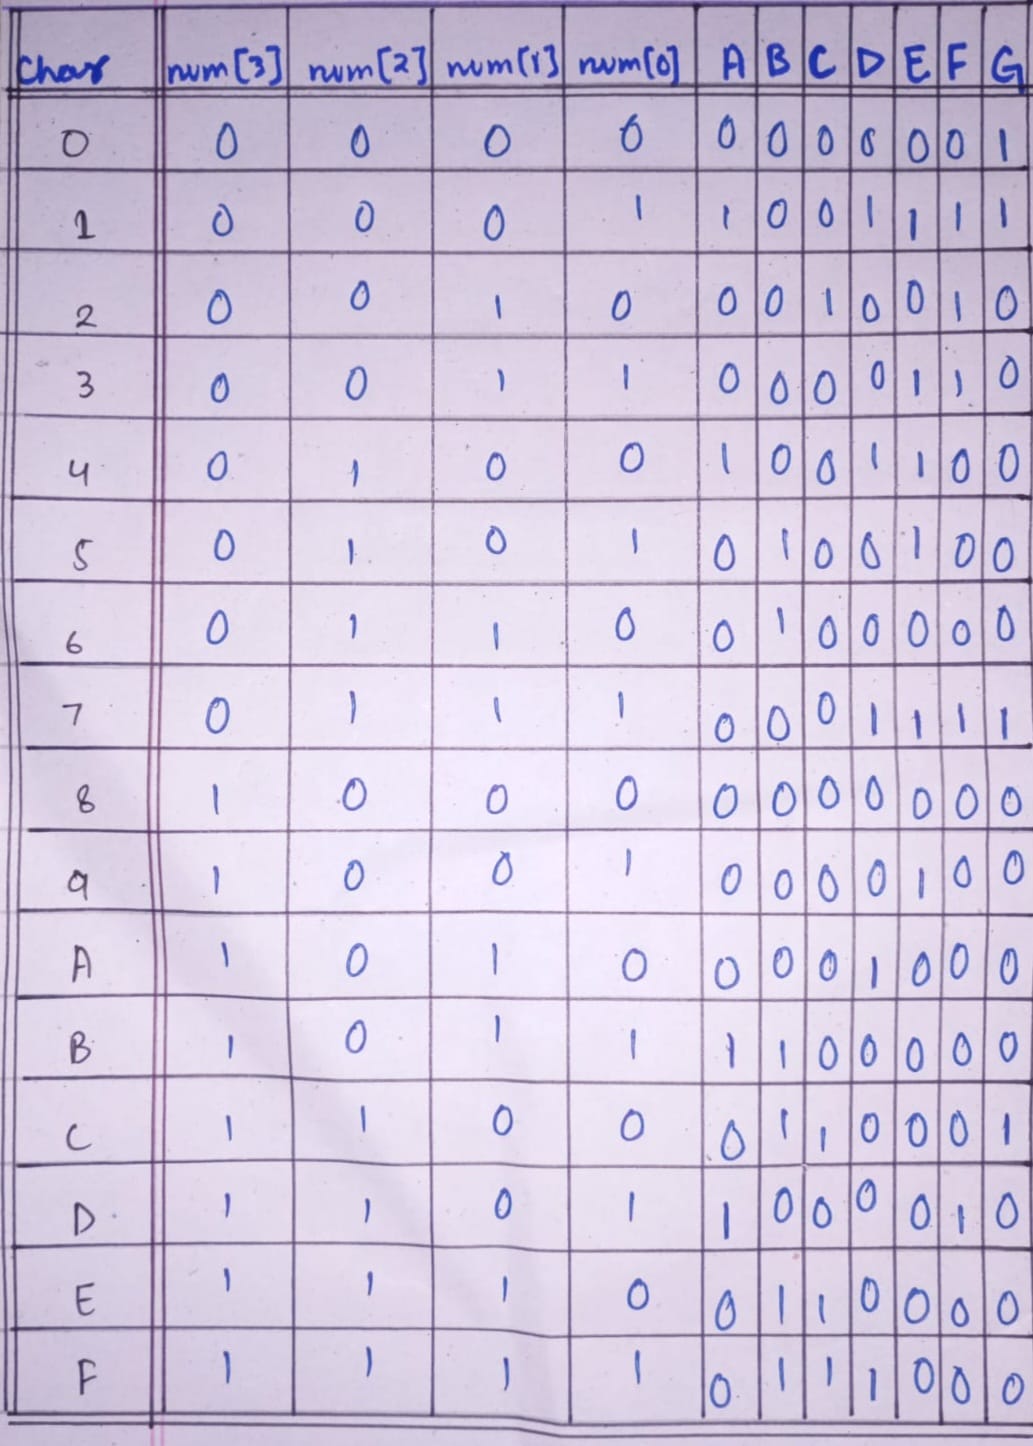 Char num[3] num[2] num[1] num[0] A B C D E F G
0 0 0 0 0 0 0 0 0 0 0 1
1 0 0 0 1 1 0 0 1 1 1 1
2 0 0 1 0 0 0 1 0 0 1 0
3 0 0 1 1 0 0 0 0 1 1 0
4 0 1 0 0 1 0 0 1 1 0 0
5 0 1 0 1 0 1 0 0 1 0 0
6 0 1 1 0 0 1 0 0 0 0 0
7 0 1 1 1 0 0 0 1 1 1 1
8 1 0 0 0 0 0 0 0 0 0 0
9 1 0 0 1 0 0 0 0 1 0 0
A 1 0 1 0 0 0 0 1 0 0 0
B 1 0 1 1 1 1 0 0 0 0 0
C 1 1 0 0 0 1 1 0 0 0 1
D 1 1 0 1 1 0 0 0 0 1 0
E 1 1 1 0 0 1 1 0 0 0 0
F 1 1 1 1 0 1 1 1 0 0 0